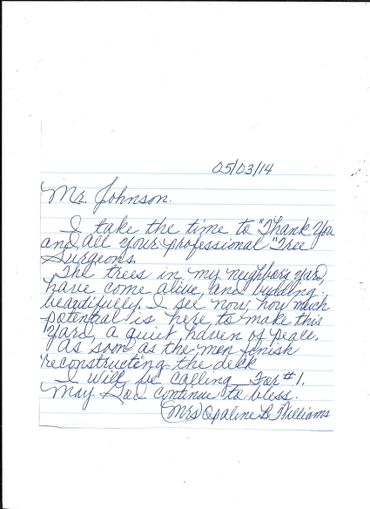 05/03/14
Mr. Johnson.
I take the time to "Thank You
and all your professional "Tree
Surgeons.
The trees in my neighbors yard,
have come alive, and budding
beautifully. I see now, how much
potential is here, to make this
yard, a quiet haven of peace.
As soon as the men finish
reconstructing the deck
I will be calling For #1.
May God continue to bless.
(Mrs) Opaline B. Williams